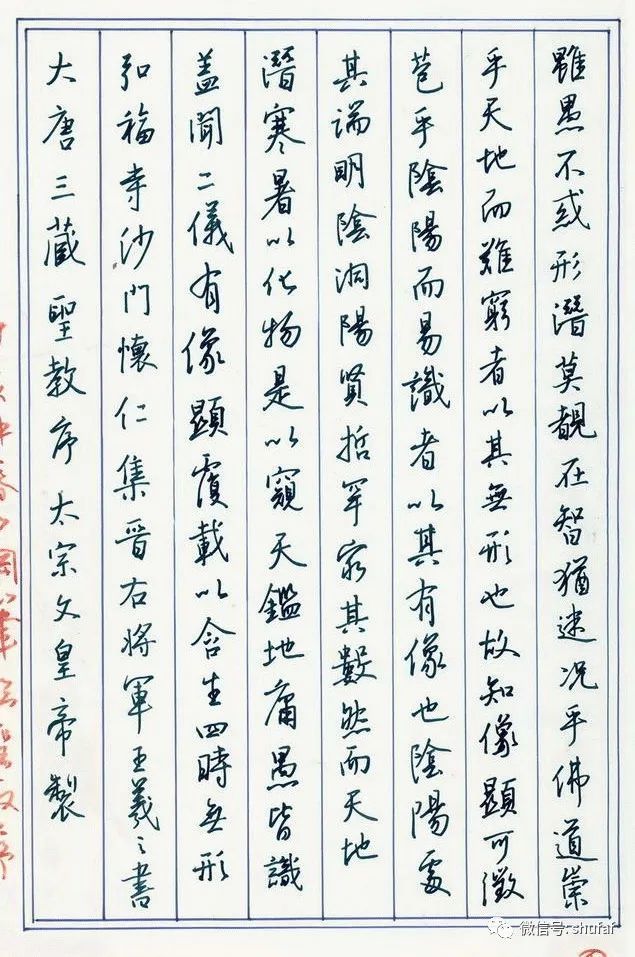 大唐三藏聖教序太宗文皇帝製
弘福寺沙門懷仁集晉右將軍王羲之書
盖聞二儀有像顯覆載以含生四時無形
潛寒暑以化物是以窺天鑑地庸愚皆識
其端明陰洞陽賢哲罕窮其數然而天地
苞乎陰陽而易識者以其有像也陰陽處
乎天地而難窮者以其無形也故知像顯可徵
雖愚不惑形潛莫覩在智猶迷況乎佛道崇
微信号: shufaf